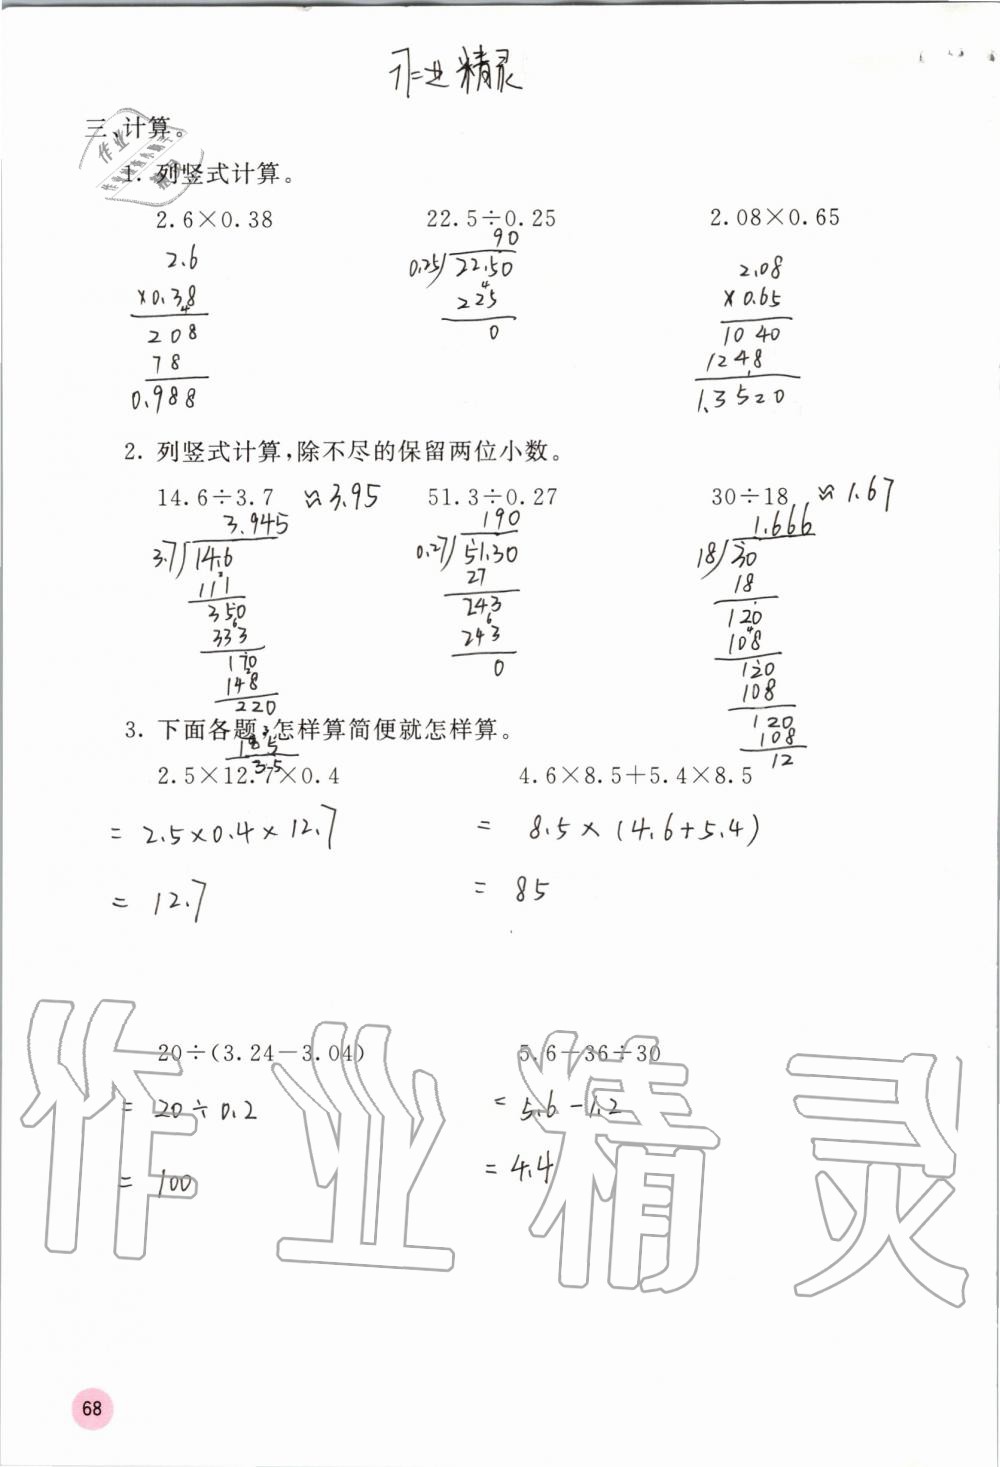 作业精灵
三、计算。
1. 列竖式计算。
2.6×0.38 22.5÷0.25 2.08×0.65
2.6
×0.38
208
78
0.988
90
0.25 22.50
225
0
2.08
×0.65
1040
1248
1.3520
2. 列竖式计算,除不尽的保留两位小数。
14.6÷3.7 ≈3.95 51.3÷0.27 30÷18 ≈1.67
3.945
3.7 14.6
111
350
333
170
148
220
185
35
190
0.27 51.30
27
243
243
0
1.666
18 30
18
120
108
120
108
120
108
12
3. 下面各题,怎样算简便就怎样算。
2.5×12.7×0.4 4.6×8.5+5.4×8.5
=2.5×0.4×12.7 = 8.5×(4.6+5.4)
=12.7 = 85
20÷(3.24-3.04) 5.6-36÷30
=20÷0.2 =5.6-1.2
=100 =4.4
作业精灵
68